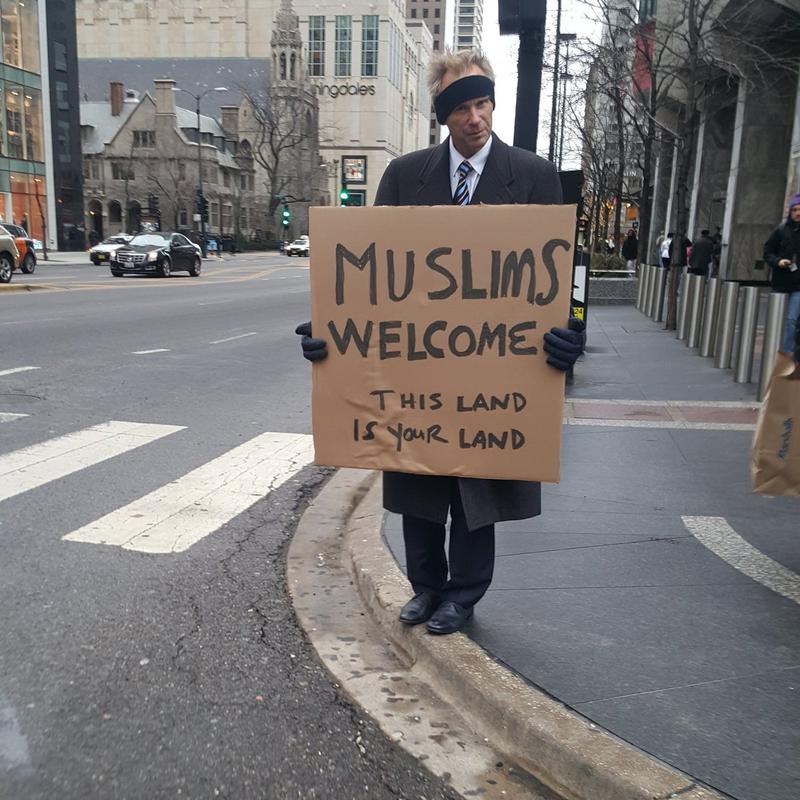 mingdale's
MUSLIMS
WELCOME
THIS LAND
IS YOUR LAND
Marshalls